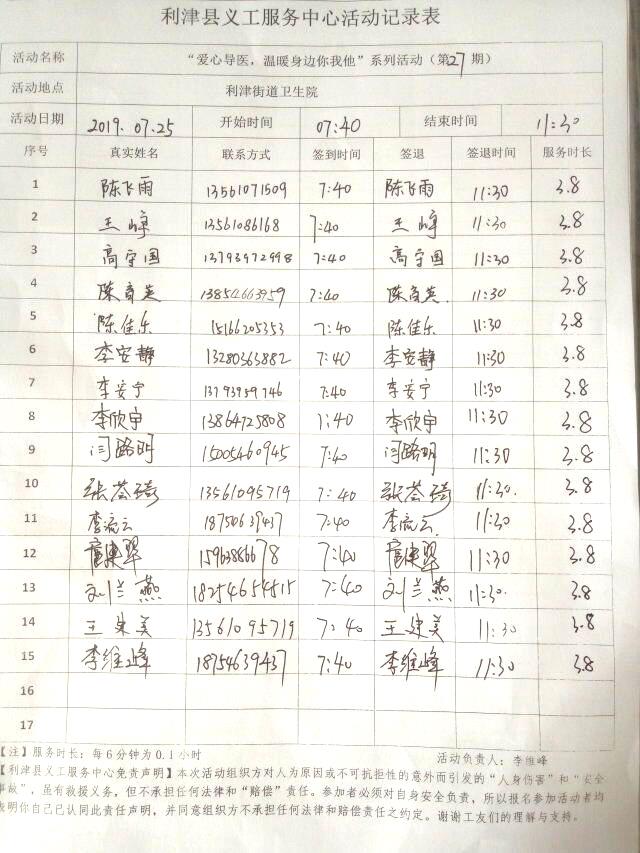 利津县义工服务中心活动记录表
活动名称 “爱心导医，温暖身边你我他”系列活动（第27期）
活动地点 利津街道卫生院
活动日期 2019.07.25 开始时间 07:40 结束时间 11:30
序号 真实姓名 联系方式 签到时间 签退 签退时间 服务时长
1 陈飞雨 13561071509 7:40 陈飞雨 11:30 3.8
2 王峰 13561086168 7:40 王峰 11:30 3.8
3 高守国 13793972998 7:40 高守国 11:30 3.8
4 陈育英 13854663959 7:40 陈育英. 11:30 3.8
5 陈佳乐 15166205353 7:40 陈佳乐 11:30 3.8
6 李安静 13280363882 7:40 李安静 11:30 3.8
7 李安宁 13793959746 7:40 李安宁 11:30 3.8
8 李欣宇 13864725808 7:40 李欣宇 11:30 3.8
9 闫路明 15005460945 7:40 闫路明 11:30 3.8
10 张苓琦 13561095719 7:40 张苓琦 11:30. 3.8
11 李流云 18750639437 7:40 李流云. 11:30 3.8
12 7:40 11:30 3.8
13 刘兰燕 18254654515 7:40 刘兰燕 11:30. 3.8
14 王建美 13561095719 7:40 王建美 11:30 3.8
15 李维峰 18754639437 7:40 李维峰 11:30 3.8
16
17
【注】服务时长：每6分钟为0.1小时 活动负责人：李维峰
【利津县义工服务中心免责声明】本次活动组织方对人为原因或不可抗拒性的意外而引发的“人身伤害”和“安全
事故”，虽有救援义务，但不承担任何法律和“赔偿”责任。参加者必须对自身安全负责，所以报名参加活动者均
表明你自己已认同此责任声明，并同意组织方不承担任何法律和赔偿责任之约定。谢谢工友们的理解与支持。